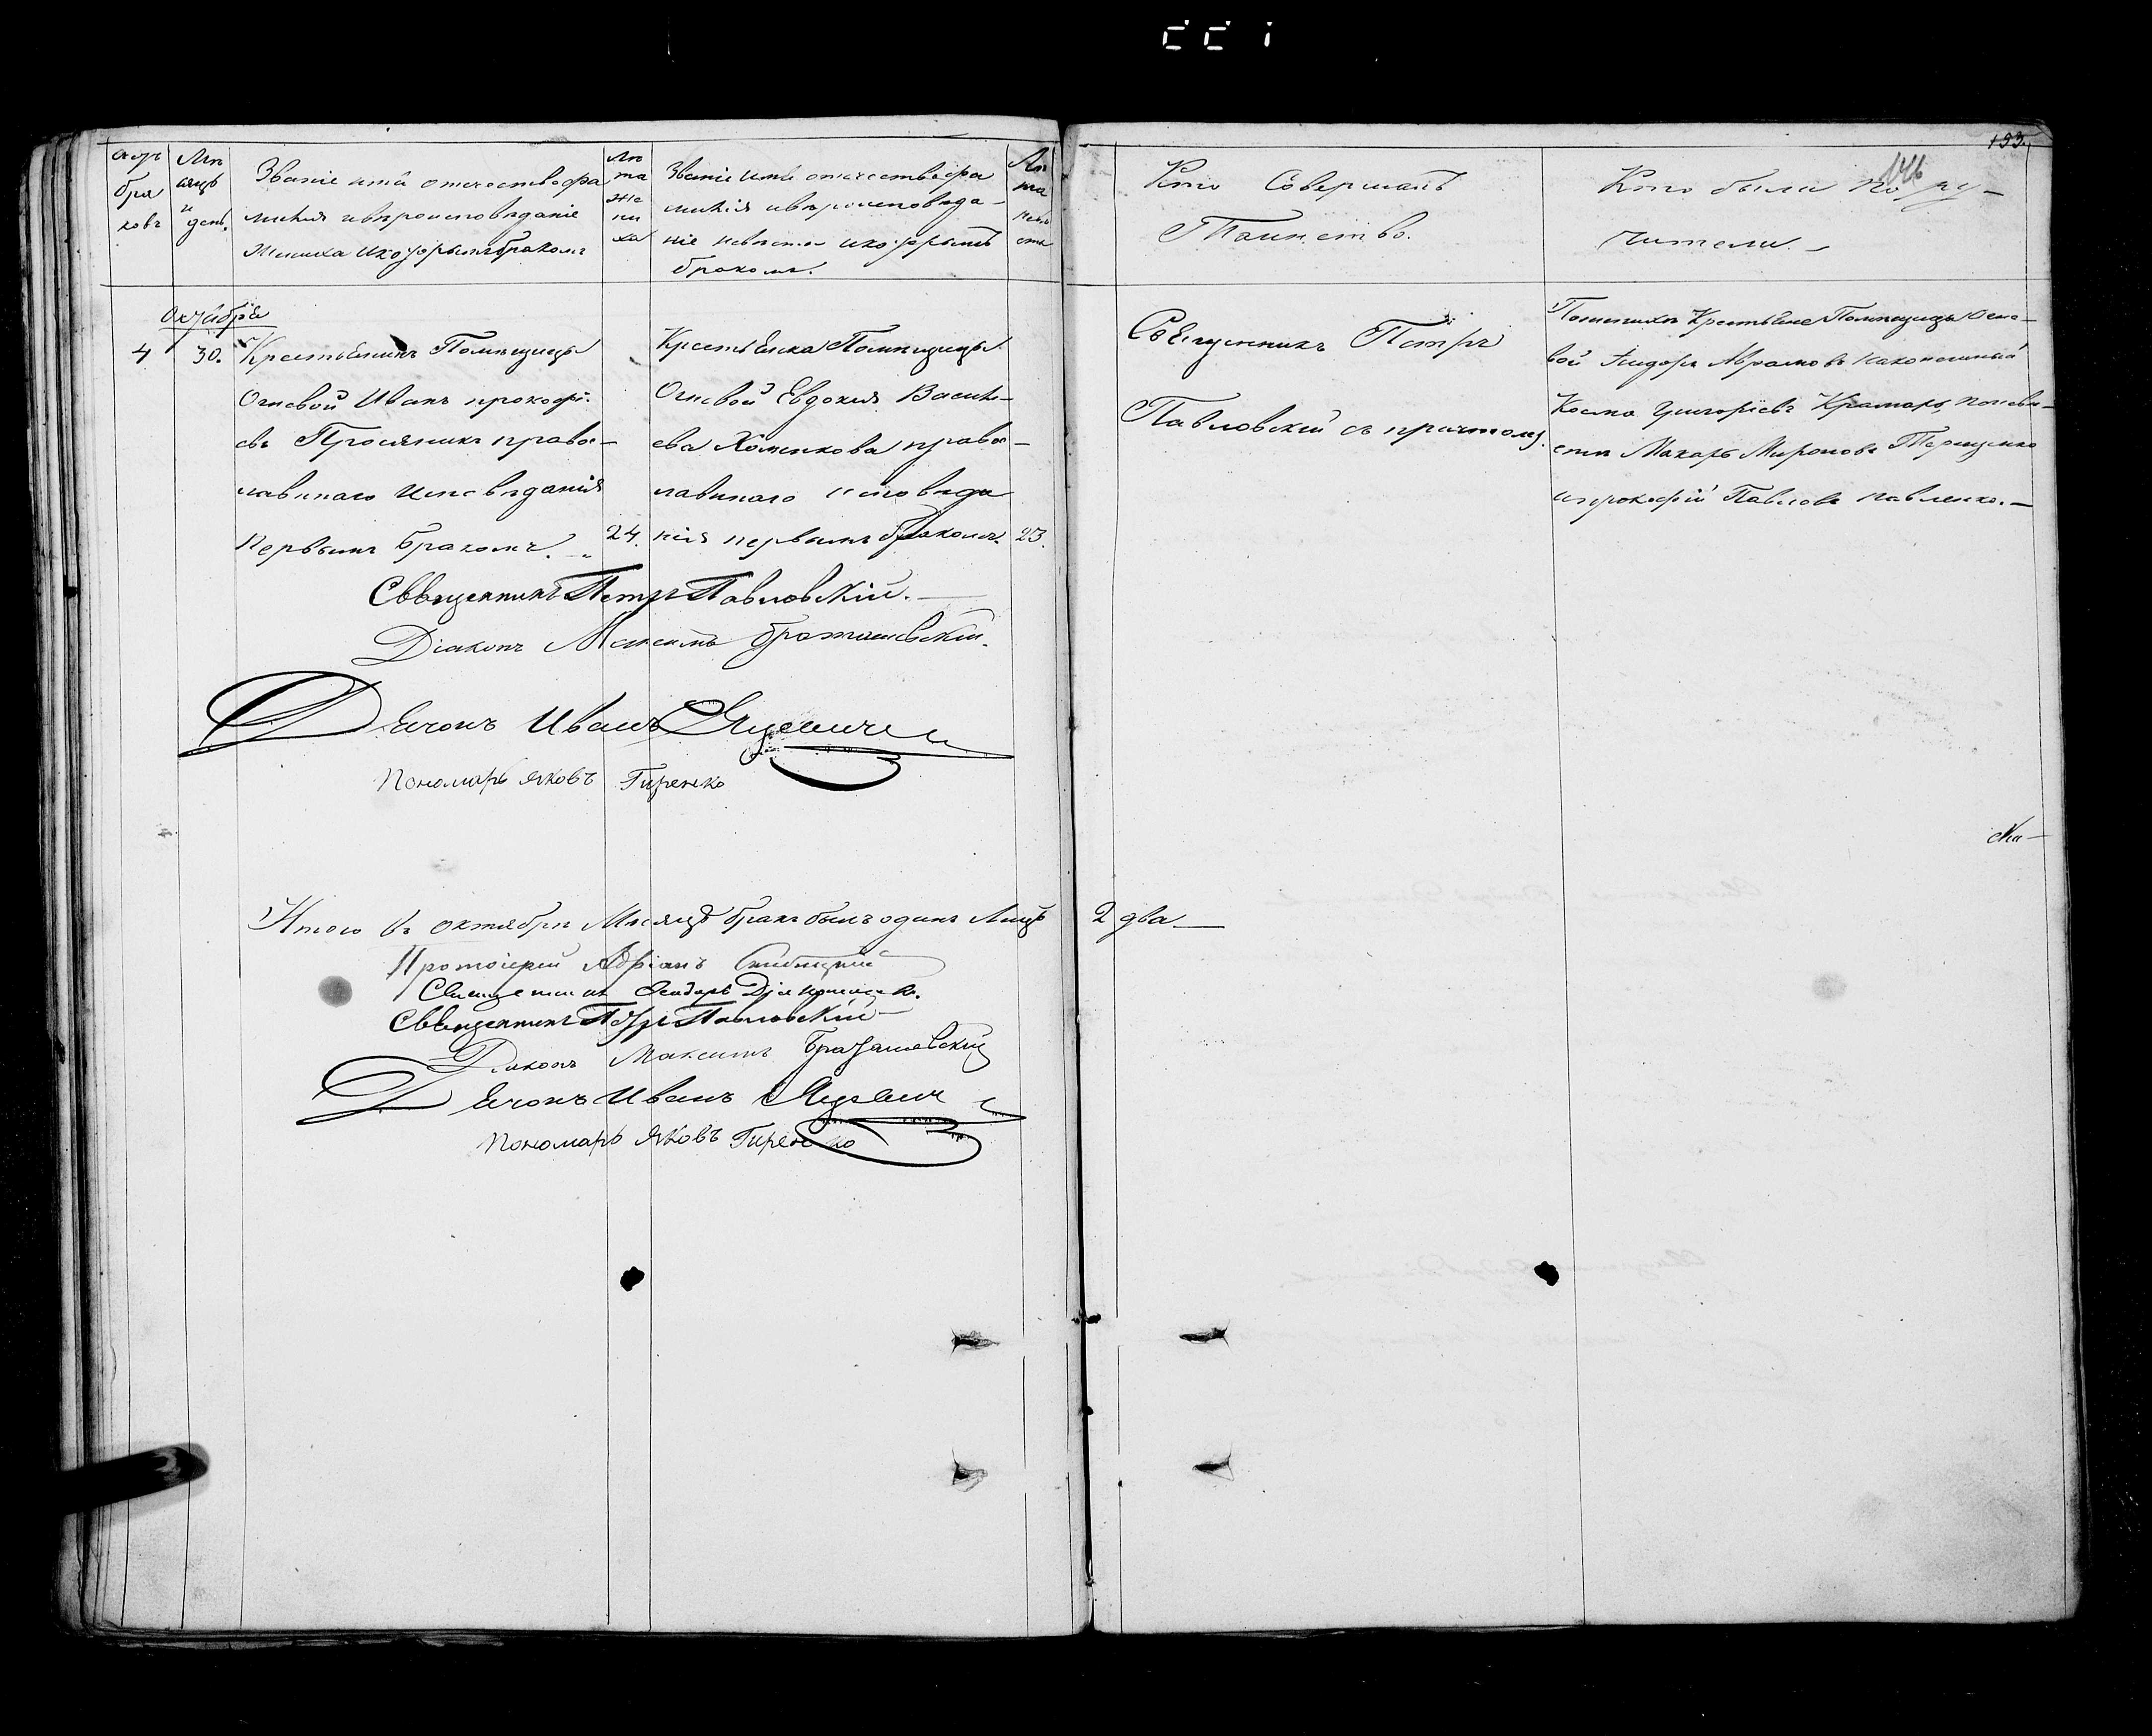 153.
146
Счетъ браковъ
Мѣсяцъ и день.
Званіе имя отечество фа
милія и вѣроисповѣданіе
жениха и которымъ бракомъ
Лѣта жениха
Званіе имя отечество фа
милія и вѣроисповѣда-
ніе невѣсты и которымъ
бракомъ.
Лѣта невѣсты
Кто Совершалъ
Таинство.
Кто были пору-
чители.-
Октября
4 30. Крестьянинъ Помѣщицы
Огневой Иванъ прокофі-
евъ Просяникъ право-
славнаго исповѣданія
первымъ бракомъ.
24.
Крестьянка Помѣщицы
Огневой Евдокия Василь-
ева Хоменкова право-
славнаго исповѣда
нія первымъ бракомъ.
23.
Священникъ Петръ
Павловскій съ причтомъ.
По женихѣ Крестьяне Помѣщицы Огне-
вой Сидоръ Аврамовъ
Косма Григоріевъ Крамарь, по невѣ-
стѣ Макаръ Мироновъ Терещенко
и прокофій Павловъ павленко.-
Священникъ Петръ Павловскій.-
Діаконъ Максимъ Браташевскій.
Дьячокъ Иванъ Яцевичъ
Пономарь Яковъ Гиренко
Итого въ октябрѣ Мѣсяцѣ бракъ былъ одинъ Лицъ 2 два
Протоіерей Адріанъ
Священникъ Феодоръ
Священникъ Петръ Павловскій-
Діаконъ Максимъ Браташевскій
Дьячокъ Иванъ Яцевичъ
Пономарь Яковъ Гиренко